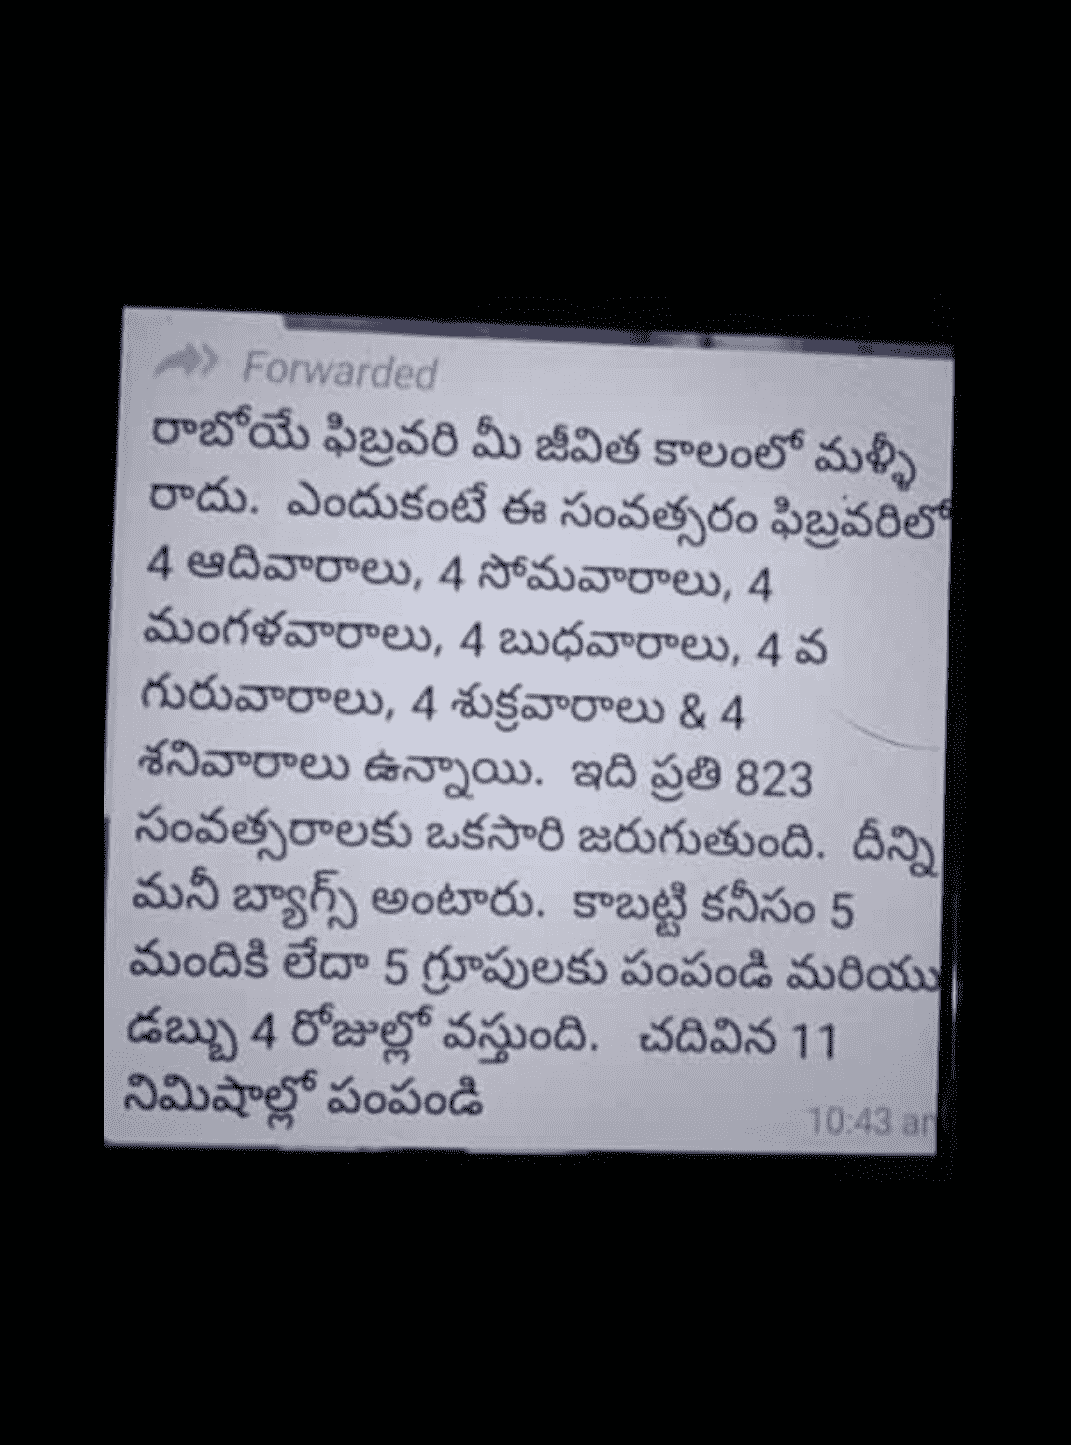 Forwarded
రాబోయే ఫిబ్రవరి మీ జీవిత కాలంలో మళ్ళీ
రాదు. ఎందుకంటే ఈ సంవత్సరం ఫిబ్రవరిలో
4 ఆదివారాలు, 4 సోమవారాలు, 4
మంగళవారాలు, 4 బుధవారాలు, 4 వ
గురువారాలు, 4 శుక్రవారాలు & 4
శనివారాలు ఉన్నాయి. ఇది ప్రతి 823
సంవత్సరాలకు ఒకసారి జరుగుతుంది. దీన్ని
మనీ బ్యాగ్స్ అంటారు. కాబట్టి కనీసం 5
మందికి లేదా 5 గ్రూపులకు పంపండి మరియు
డబ్బు 4 రోజుల్లో వస్తుంది. చదివిన 11
నిమిషాల్లో పంపండి
10:43 am